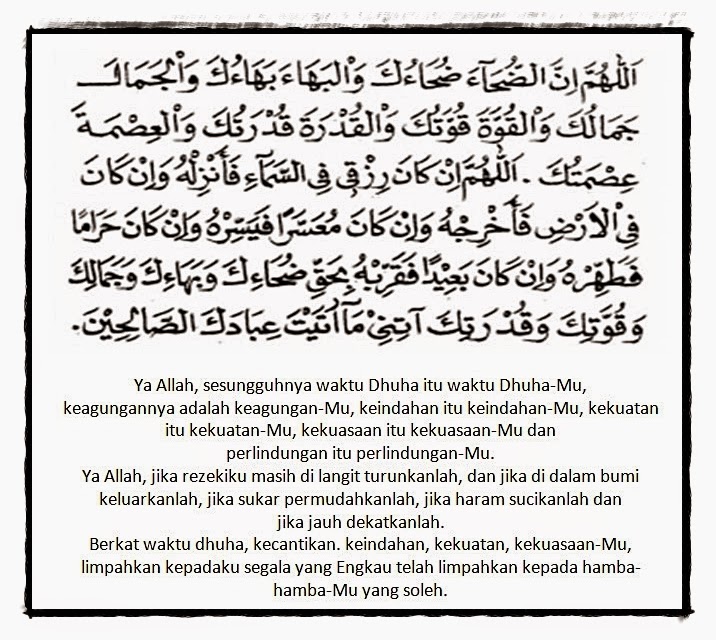 اَللّٰهُمَّ اِنَّ الضُّحَآءَ ضُحَاءُكَ وَالْبَهَاءَ بَهَاءُكَ وَالْجَمَالَ
جَمَالُكَ وَالْقُوَّةَ قُوَّتُكَ وَالْقُدْرَةَ قُدْرَتُكَ وَالْعِصْمَةَ
عِصْمَتُكَ . اَللّٰهُمَّ اِنْ كَانَ رِزْقِى فِى السَّمَآءِ فَأَنْزِلْهُ وَاِنْ كَانَ
فِى اْلاَرْضِ فَأَخْرِجْهُ وَاِنْ كَانَ مُعَسَّرًا فَيَسِّرْهُ وَاِنْ كَانَ حَرَامًا
فَطَهِّرْهُ وَاِنْ كَانَ بَعِيْدًا فَقَرِّبْهُ بِحَقِّ ضُحَاءِكَ وَبَهَاءِكَ وَجَمَالِكَ
وَقُوَّتِكَ وَقُدْرَتِكَ آتِنِيْ مَآ اٰتَيْتَ عِبَادَكَ الصَّالِحِيْنَ.
Ya Allah, sesungguhnya waktu Dhuha itu waktu Dhuha-Mu,
keagungannya adalah keagungan-Mu, keindahan itu keindahan-Mu, kekuatan
itu kekuatan-Mu, kekuasaan itu kekuasaan-Mu dan
perlindungan itu perlindungan-Mu.
Ya Allah, jika rezekiku masih di langit turunkanlah, dan jika di dalam bumi
keluarkanlah, jika sukar permudahkanlah, jika haram sucikanlah dan
jika jauh dekatkanlah.
Berkat waktu dhuha, kecantikan. keindahan, kekuatan, kekuasaan-Mu,
limpahkan kepadaku segala yang Engkau telah limpahkan kepada hamba-
hamba-Mu yang soleh.